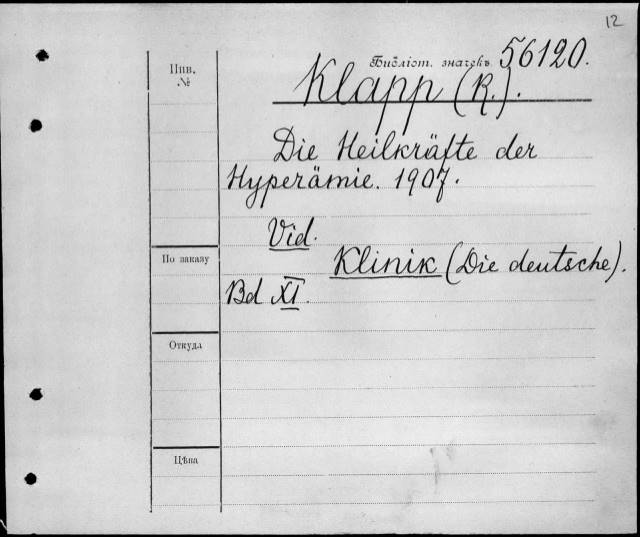 12
Библіот. значекъ 56120.
Инв.
№
Klapp (R.).
Die Heilkräfte der
Hyperämie. 1907.
Vid.
По заказу
Klinik (Die deutsche).
Bd XI.
Откуда
Цѣна